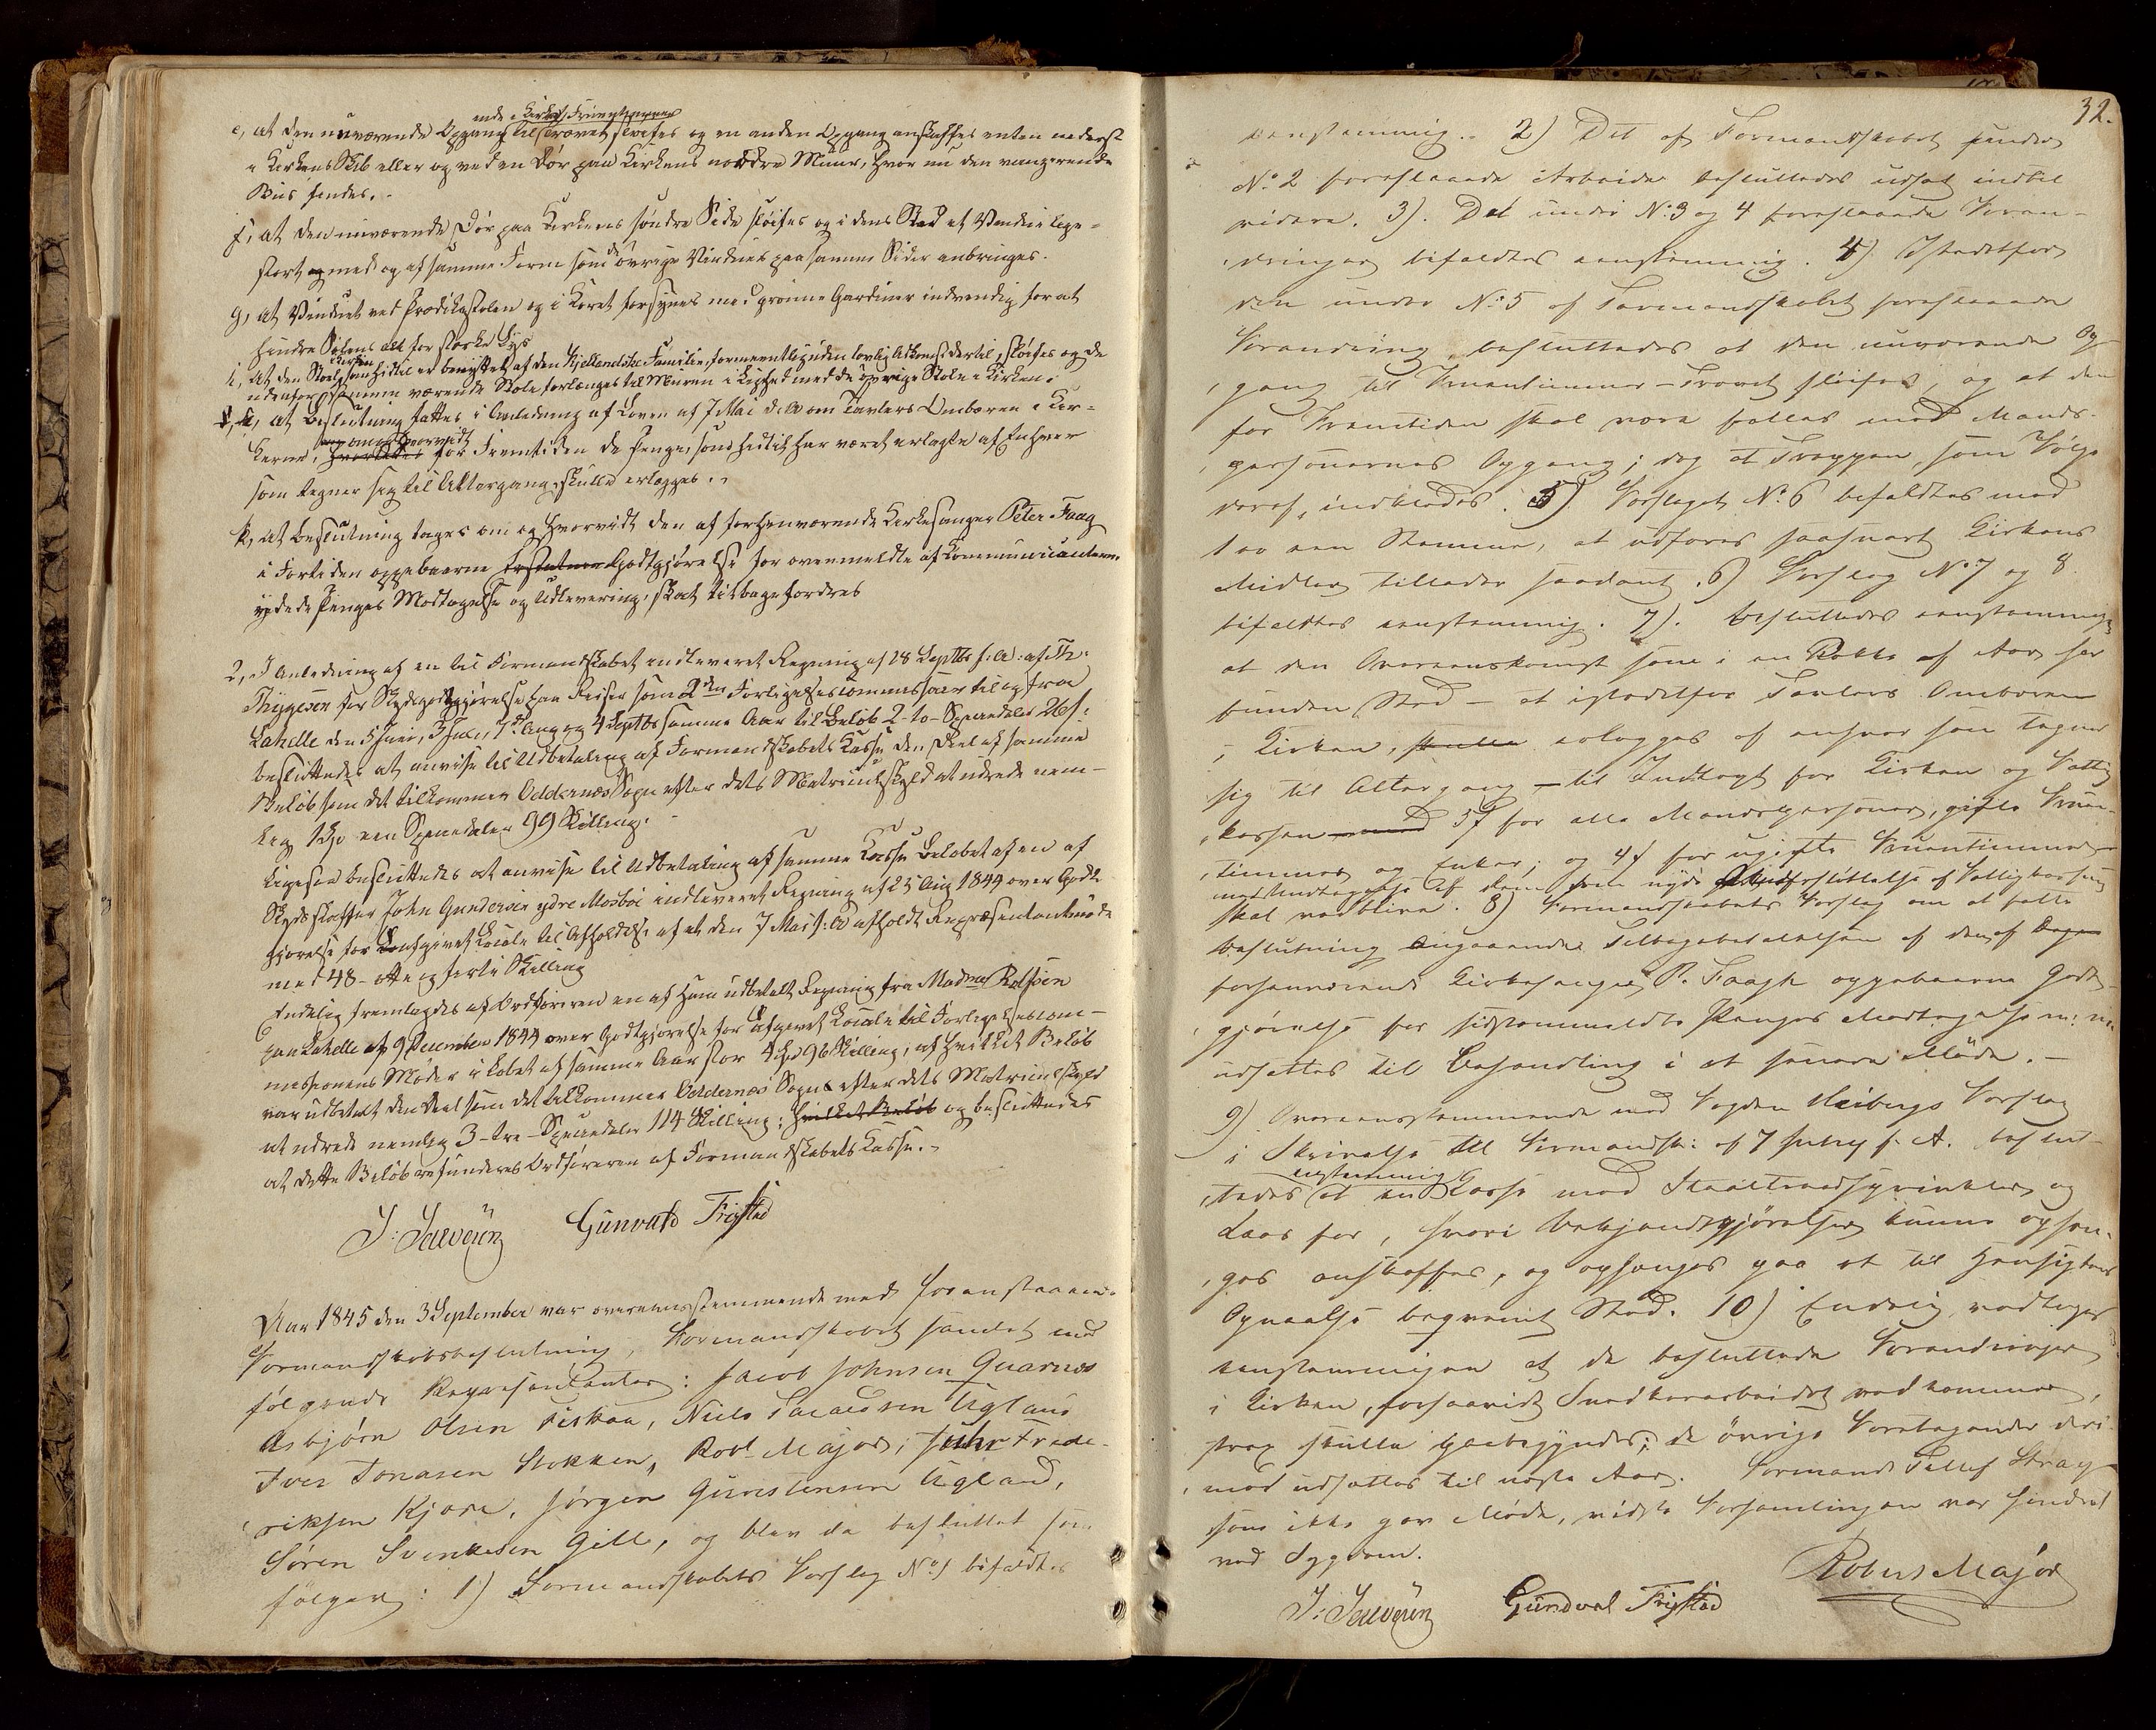 e, at den nuværende Opgang til Traven sløifes og en anden Opgang anskaffes enten nederst
i Kirkens Skib eller og ved den Dør paa Kirkens nordre Muur, hvor nu den vangerende
Biis findes.
f, at den nuværende Dør paa Kirkens søndre Side sløifes og i dens Sted et Vindue lige-
stort med og af samme Form som de øvrige Vinduer paa samme Side anbringes.
g, at Vinduet ved Prædikestolen og i Koret forsynes med grønne Gardiner indvendig for at
hindre Solens alt for stærke Lys
i, at den Stoel i Kirken som hidtil er benyttet af den Kjellandske Familie, formeentlig uden lovlig Adkomst dertil, sløifes og de
udenfor samme værende Stole forlænges til Muren i Lighed med de øvrige Stole i Kirken
at Beslutning fattes i Anledning af Loven af 7 Mai d. A. om Tavlers Ombæren i Kir-
kerne, om og hvorvidt for Fremtiden de Penge, som hidtil har været erlagte af Enhver
som tegner sig til Altergang, skulle erlægges.
k, at Beslutning tages om og hvorvidt den af forhenværende Kirkesanger Peter Faag
i Fortiden oppebaarne Godtgjørelse for ovenmeldte af Communicanterne
ydede Penges Modtagelse og Udlevering, skal tilbagefordres
2, I Anledning af en til Formandskabet indleveret Regning af 28 Septbr f: A: af Th:
Thygesen for Skydsgodtgjørelse paa Reiser som 2den Forligelsescommissair til og fra
Lahelle den 5 Juni, 3 Juli, 7de Aug og 4 Septbr samme Aar til Beløb 2 - to - Speciedaler 26 s:
besluttedes at anvise til Udbetaling af Formandskabets Kasse den Deel af samme
Beløb som det tilkommer Oddernæs Sogn efter dets Matriculskyld at udrede nem-
lig 1 Sp een Speciedaler 99 Skilling.
Ligesaa besluttedes at anvise til Udbetaling af samme Kasse Beløbet af en af
Skydsskaffer John Gundersen ydre Mosbøe indleveret Regning af 25 Aug 1844 over Godt-
gjørelse for afgivet Locale til Afholdelse af et den 7 Mai f: A afholdt Repræsentantmøde
med 48 - otte og førti Skilling
Endelig fremlagdes af Ordføreren en af ham udbetalt Regning fra Madme Rolfsen
paa Lahelle af 9 December 1844 over Godtgjørelse for afgivet Locale til Forligelsescom-
missionens Møder i Løbet af samme Aar stor 4 Spd 96 Skilling; af hvilket Beløb
var udbetalt den Deel som det tilkommer Oddernæs Sogn efter dets Matriculskyld
at udrede nemlig 3 - tre - Speciedaler 114 Skilling; og besluttedes
at dette Beløb refunderes Ordføreren af Formandskabets Kasse.
Gunvald Frigstad
Aar 1845 den 3 September var overeensstemmende med foranstaaende
Formandskabsbeslutning, Formandskabet samlet med
følgende Repræsentanter: Jacob Johnsen Quarnæs
Asbjørn Olsen Fiskaa, Niels Salvesen Ugland
Iver Tonasen Stokken, Robt Major, Juhr Frede-
riksen Kjære, Jørgen Gunstensen Ugland,
Søren Svenkesen Gill, og blev da besluttet som
følger: 1) Formandskabets Forslag No 1 bifaldtes
32.
eenstemmig. 2) Det af Formandskabet under
No 2 foreslaaede Arbeide besluttedes udsat indtil
videre. 3). Det under No 3 og 4 foreslaaede Foran-
dringer bifaldtes eenstemmig. 4) Istedetfor
den under No 5 af Formandskabet foreslaaede
Forandring besluttedes at den nuværende Op-
gang til Fruentimmer-Travet sløifes, og at den
for Fremtiden skal være fælles med Mands-
personernes Opgang; dog at Trappen, som Følge
deraf, indklædes. 5) Forslaget No 6 bifaldtes med
Stemme, at udføres saasnart Kirkens
Midler tillader saadant. 6) Forslag No 7 og 8
bifaldtes eenstemmig. 7). besluttedes eenstemmigen
at den Overeenskomst som i en Række af Aar har
funden Sted - at istedetfor Tavlers Ombæren
i Kirken, erlægges af enhver som tegner
sig til Altergang - til Indtægt for Kirken og Fattig-
kassen 5 s for alle Mandspersoner, gifte Fruen-
timmer og Enker, og 4 s for ugifte Fruentimmer
med Undtagelse af dem som nyde Understøttelse af Fattigkassen
skal vedblive. 8) Formandskabets Forslag om at fatte
Beslutning angaaende Tilbagebetalelsen af den af
forhenværende Kirkesanger P. Faagh oppebaarne Godt-
gjørelse for sidstommeldte Penges Modtagelse m: m:
udsættes til Behandling i et senere Møde. -
9) Overeensstemmende med Fogden Heibergs Forslag
i Skrivelse til Formandsk: af 7 f. A. beslut-
tedes eenstemmig at en Kasse med Staaltraadsprinkler og
Laas for, hvori Bekjendtgjørelser kunne ophæn-
ges anskaffes, og ophænges paa et til Hensigtens
Opnaaelse beqvemt Sted. 10) Endelig vedtoges
eenstemmigen at de besluttede Forandringer
i Kirken, forsaavidt Snedkerarbeidet vedkommer,
strax skulle paabegyndes; de øvrige Foretagender der-
imod udsættes til næste Aar. Formand Tellef Stray
som ikke gav Møde, vidste Forsamlingen var hindret
ved Sygdom.
Gundval Frigstad
Robert Major